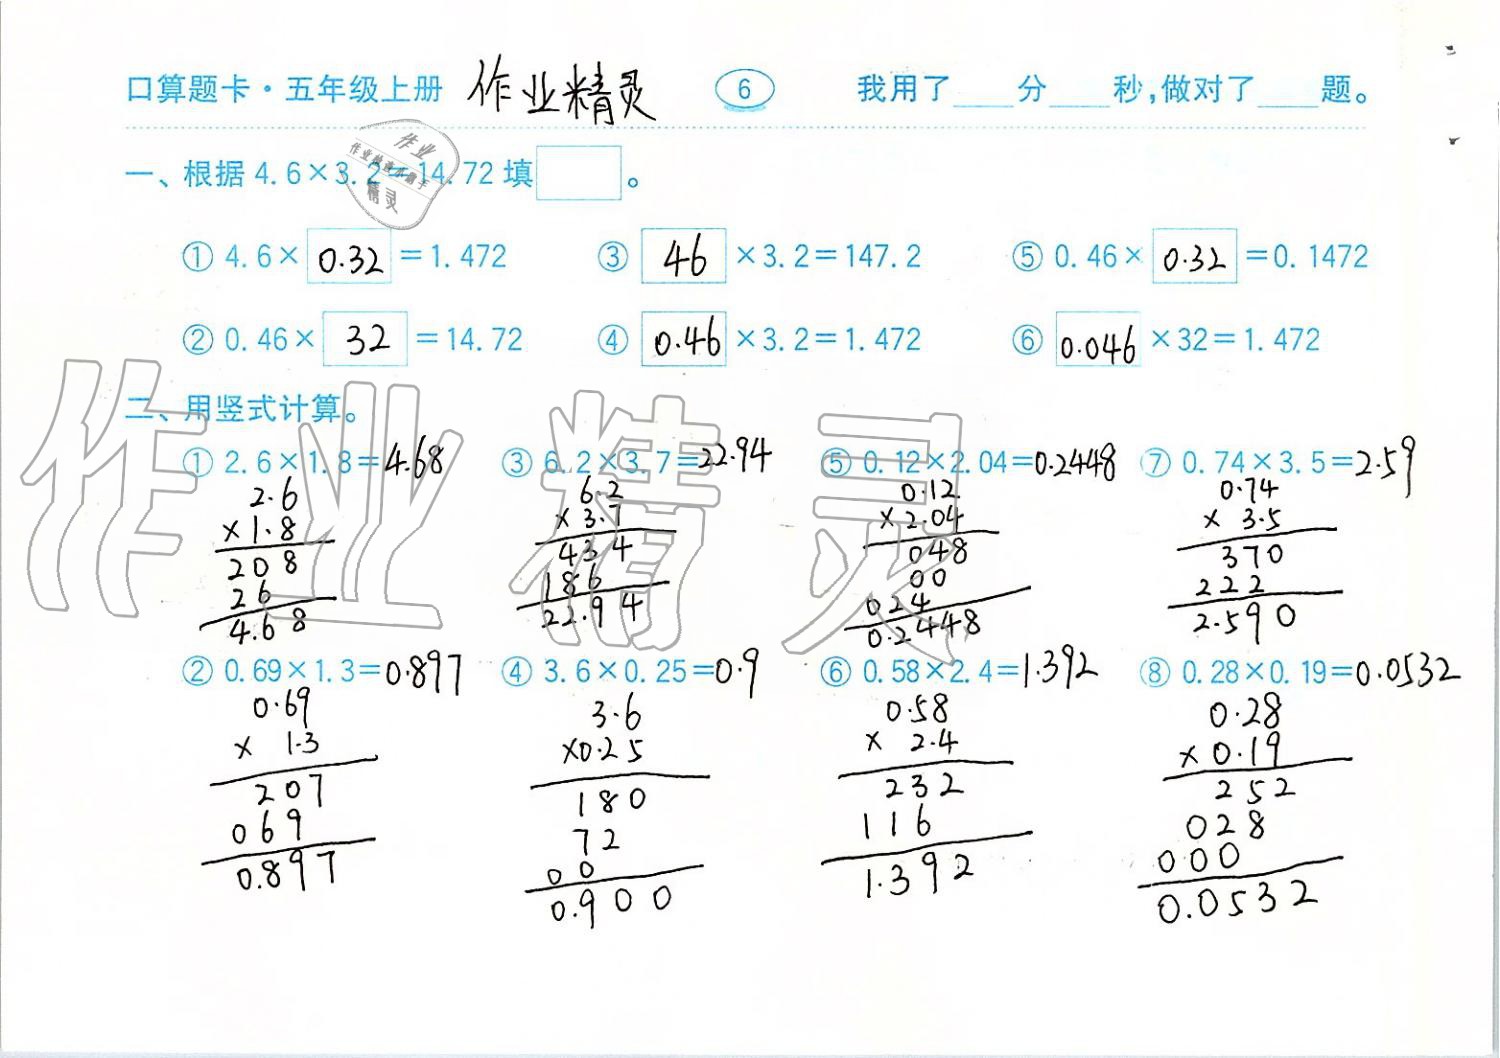 口算题卡·五年级上册 作业精灵 6 我用了____分____秒,做对了____题。
一、根据4.6×3.2=14.72填□。
①4.6×0.32=1.472 ③46×3.2=147.2 ⑤0.46×0.32=0.1472
②0.46×32=14.72 ④0.46×3.2=1.472 ⑥0.046×32=1.472
二、用竖式计算。
①2.6×1.8=4.68 ③6.2×3.7=22.94 ⑤0.12×2.04=0.2448 ⑦0.74×3.5=2.59
2.6 6.2 0.12 0.74
×1.8 ×3.7 ×2.04 ×3.5
208 434 048 370
26 186 00 222
4.68 22.94 024 2.590
0.2448
②0.69×1.3=0.897 ④3.6×0.25=0.9 ⑥0.58×2.4=1.392 ⑧0.28×0.19=0.0532
0.69 3.6 0.58 0.28
×1.3 ×0.25 ×2.4 ×0.19
207 180 232 252
069 72 116 028
0.897 00 1.392 000
0.900 0.0532
作业精灵
作业
精灵